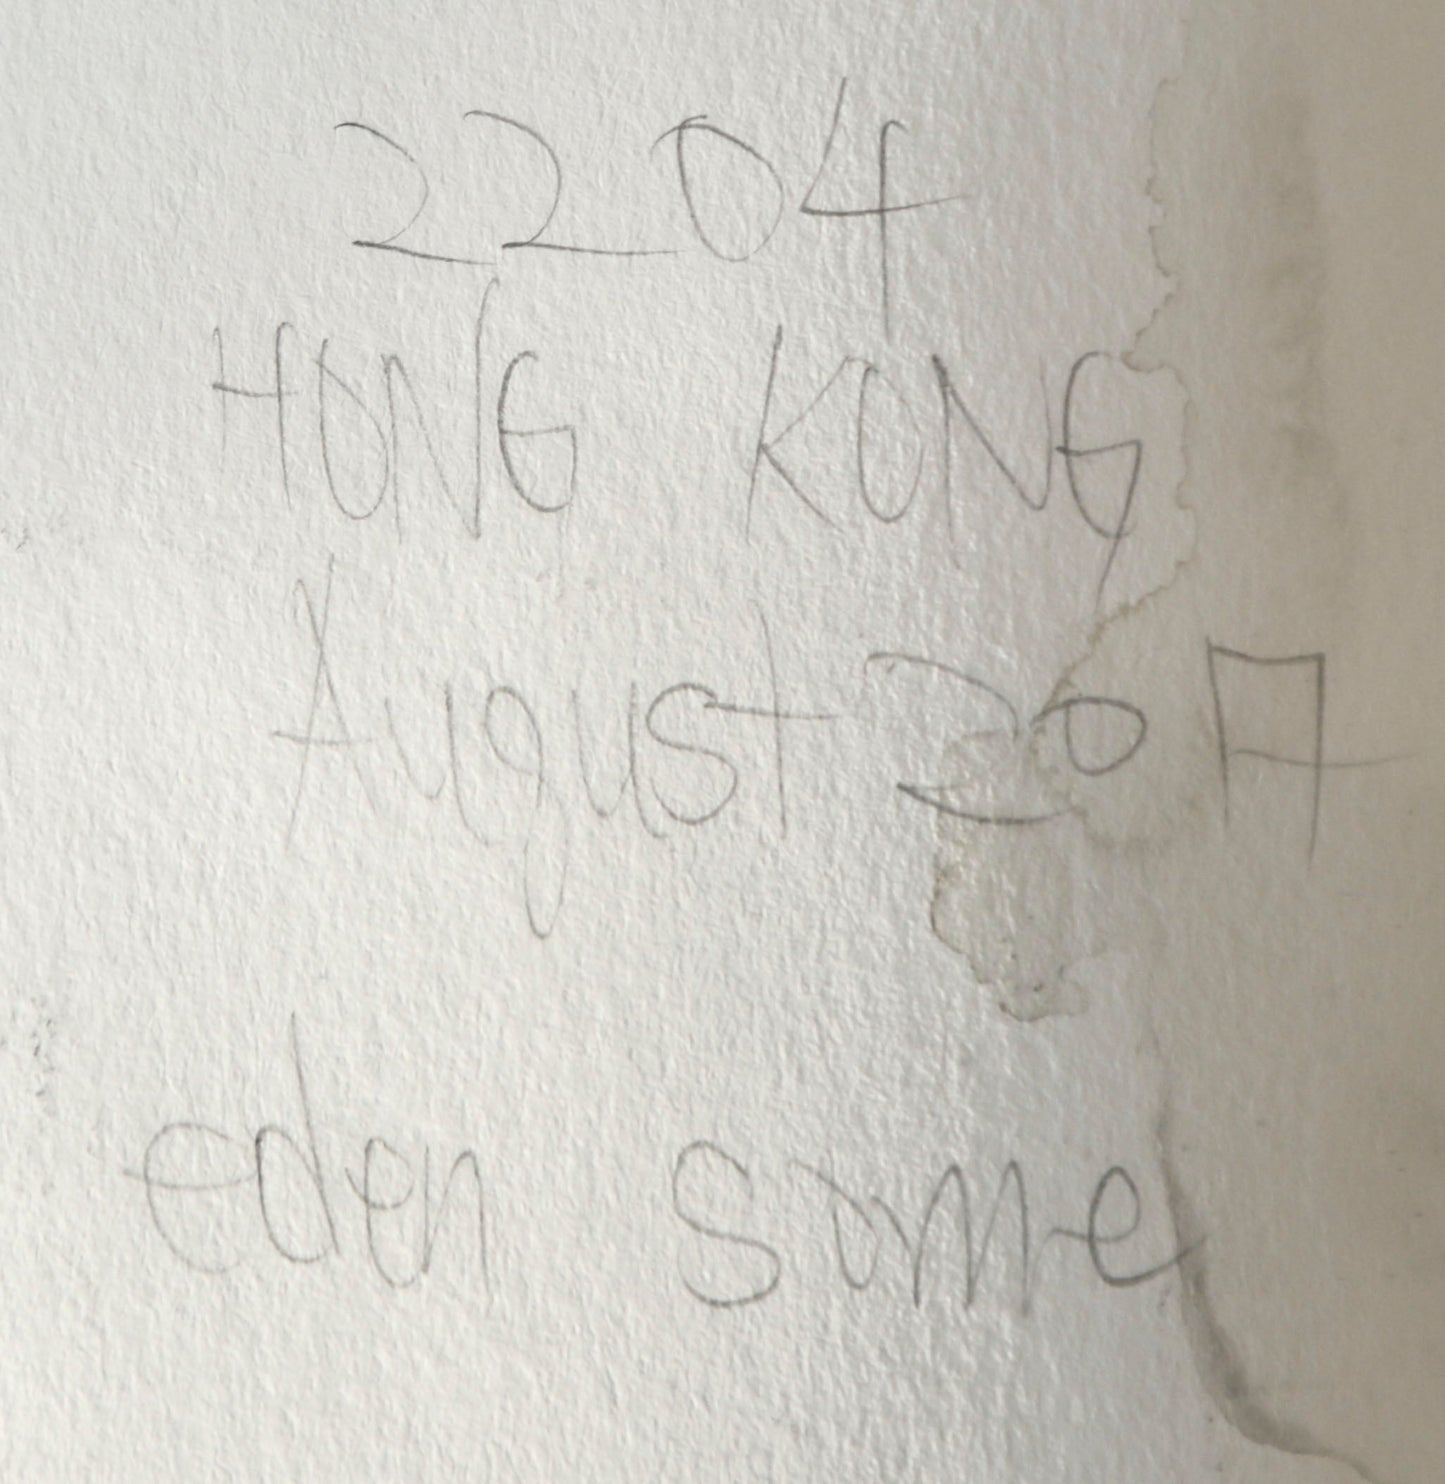 2204
HONG KONG
August 2017
eden some